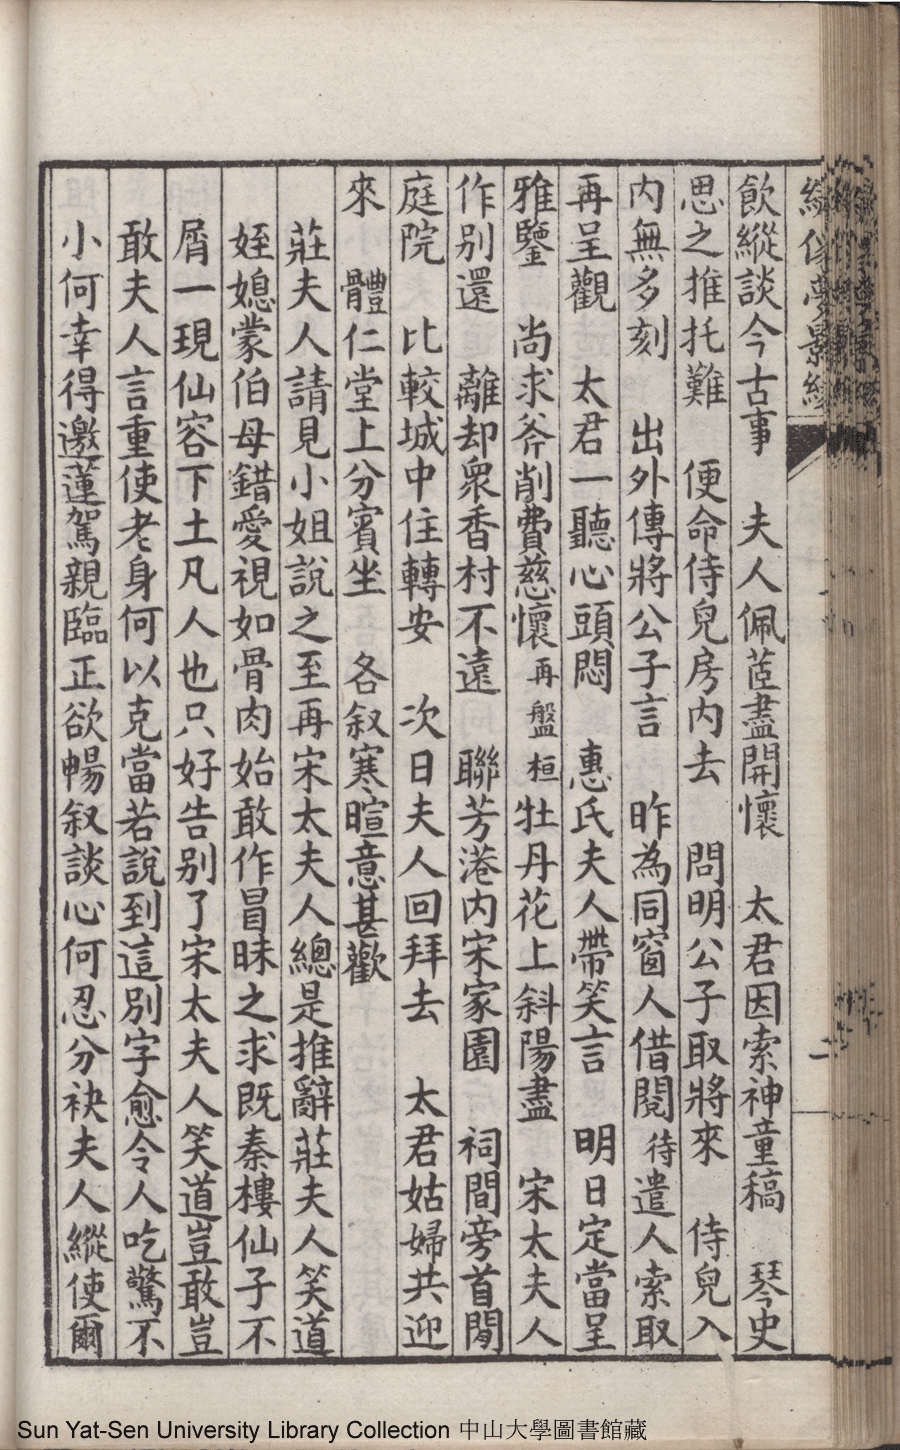 飲縱談今古事　夫人佩茝盡開懷　太君因索神童稿　琴史
思之推托難　便命侍兒房內去　問明公子取將來　侍兒入
內無多刻　出外傳將公子言　昨為同窗人借閱　待遣人索取
再呈觀　太君一聽心頭悶　惠氏夫人帶笑言　明日定當呈
雅鑒　尚求斧削費慈懷　再盤桓　牡丹花上斜陽盡　宋太夫人
作別還　離却眾香村不遠　聯芳港內宋家園　祠間旁首閒
庭院　比較城中住轉安　次日夫人回拜去　太君姑婦共迎
來　體仁堂上分賓坐　各叙寒暄意甚歡
莊夫人請見小姐說之至再宋太夫人總是推辭莊夫人笑道
姪媳蒙伯母錯愛視如骨肉始敢作冒昧之求既秦樓仙子不
屑一現仙容下土凡人也只好告别了宋太夫人笑道豈敢豈
敢夫人言重使老身何以克當若說到這別字愈令人吃驚不
小何幸得邀蓮駕親臨正欲暢叙談心何忍分袂夫人縱使爾
Sun Yat-Sen University Library Collection 中山大學圖書館藏